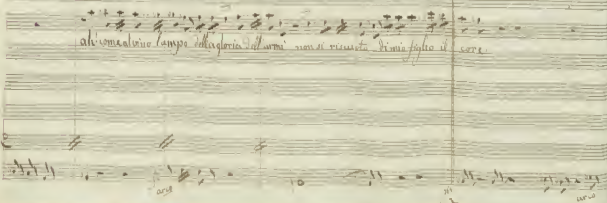 ah come al vivo lampo della gloria dell'armi non si risveglia di mio figlio il core
arco
arco